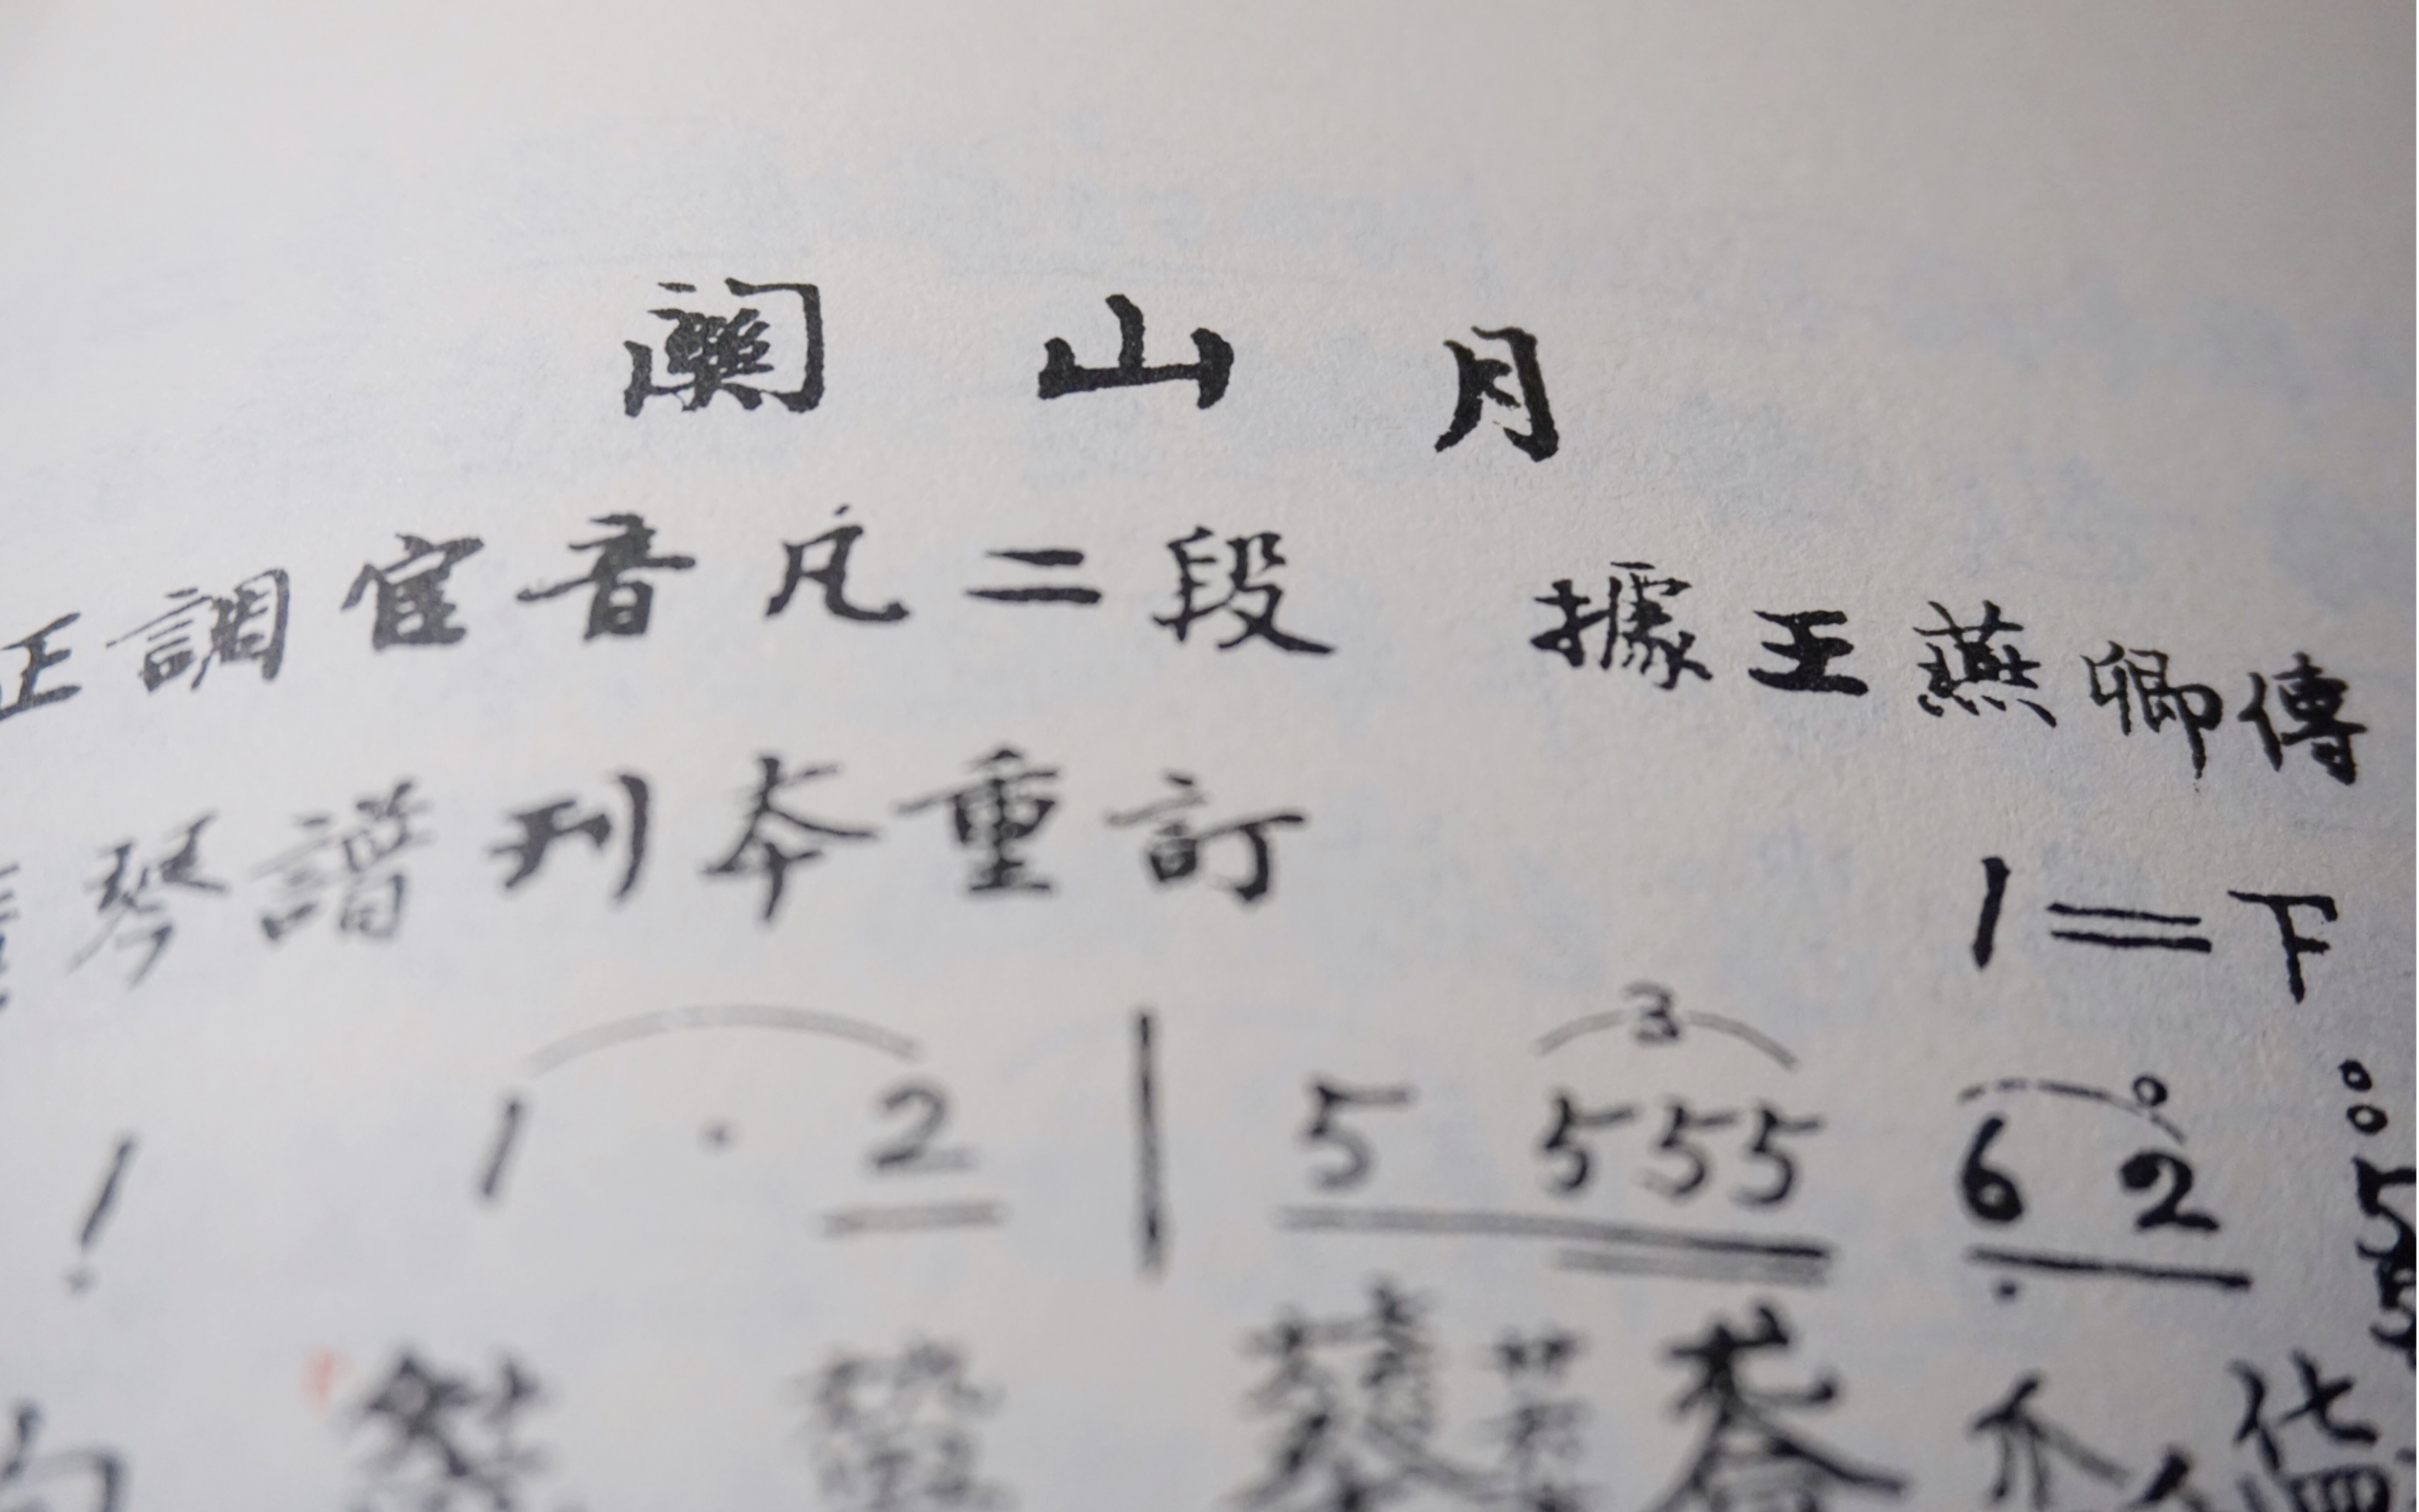 關山月
正調宮音凡二段 據王燕卿傳
琴譜刊本重訂
1=下
1 1 · 2 | 5 555 6 2 5